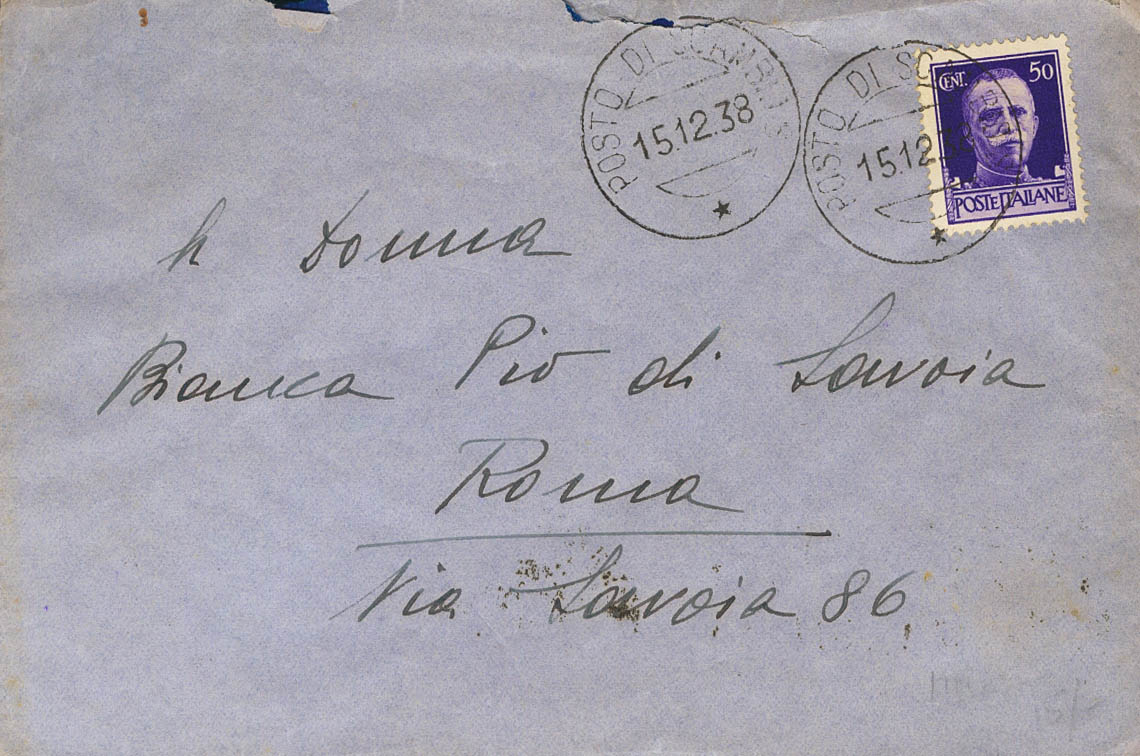 POSTO DI SCAMBIO 3
15.12.38
POSTO DI SCA
15.12.38
CENT. 50
POSTE ITALIANE
Donna
Bianca Pio di Savoia
Roma
Via Savoia 86